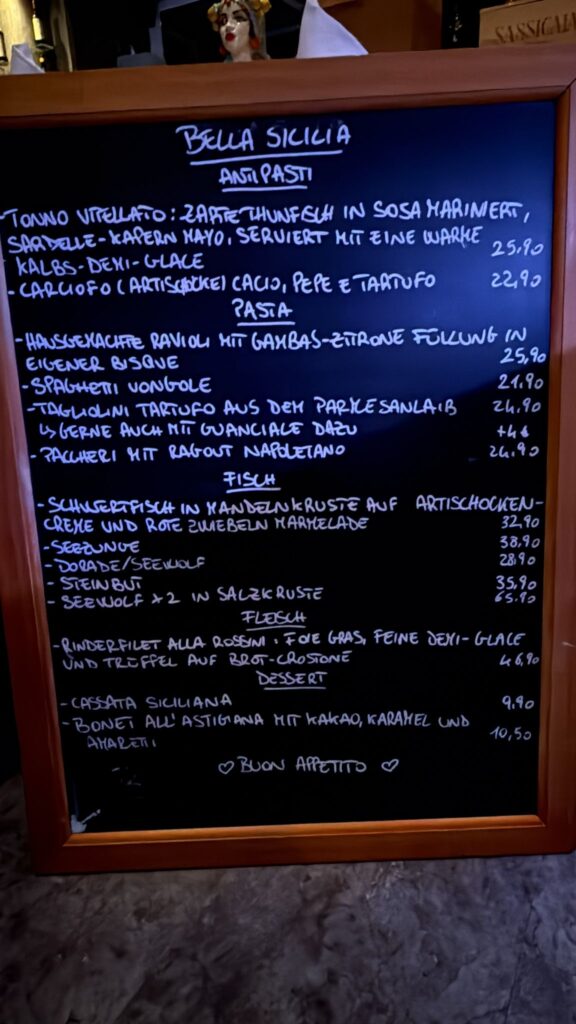 SASSICAIA
BELLA SICILIA
ANTIPASTI
-TONNO VITELLATO: ZARTE THUNFISCH IN SOSA MARINIERT,
SARDELLE-KAPERN MAYO, SERVIERT MIT EINE WARME
KALBS-DEMI-GLACE 25,90
-CARCIOFO (ARTISCHOCKE) CACIO, PEPE E TARTUFO 22,90
PASTA
-HAUSGEMACHTE RAVIOLI MIT GAMBAS-ZITRONE FÜLLUNG IN
EIGENER BISQUE 25,90
-SPAGHETTI VONGOLE 21.90
-TAGLIOLINI TARTUFO AUS DEM PARMESANLAIB 24,90
↳ GERNE AUCH MIT GUANCIALE DAZU +4€
-PACCHERI MIT RAGOUT NAPOLETANO 24,90
FISCH
-SCHWERTFISCH IN MANDELNKRUSTE AUF ARTISCHOCKEN-
CREME UND ROTE ZWIEBELN MARMELADE 32,90
-SEEZUNGE 38,90
-DORADE/SEEWOLF 28,90
-STEINBUT 35,90
-SEEWOLF x2 IN SALZKRUSTE 65.90
FLEISCH
-RINDERFILET ALLA ROSSINI: FOIE GRAS, FEINE DEMI-GLACE
UND TRÜFFEL AUF BROT-CROSTONE 46,90
DESSERT
-CASSATA SICILIANA 9,90
-BONET ALL'ASTIGIANA MIT KAKAO, KARAMEL UND
AMARETTI 10,50
♡ BUON APPETITO ♡